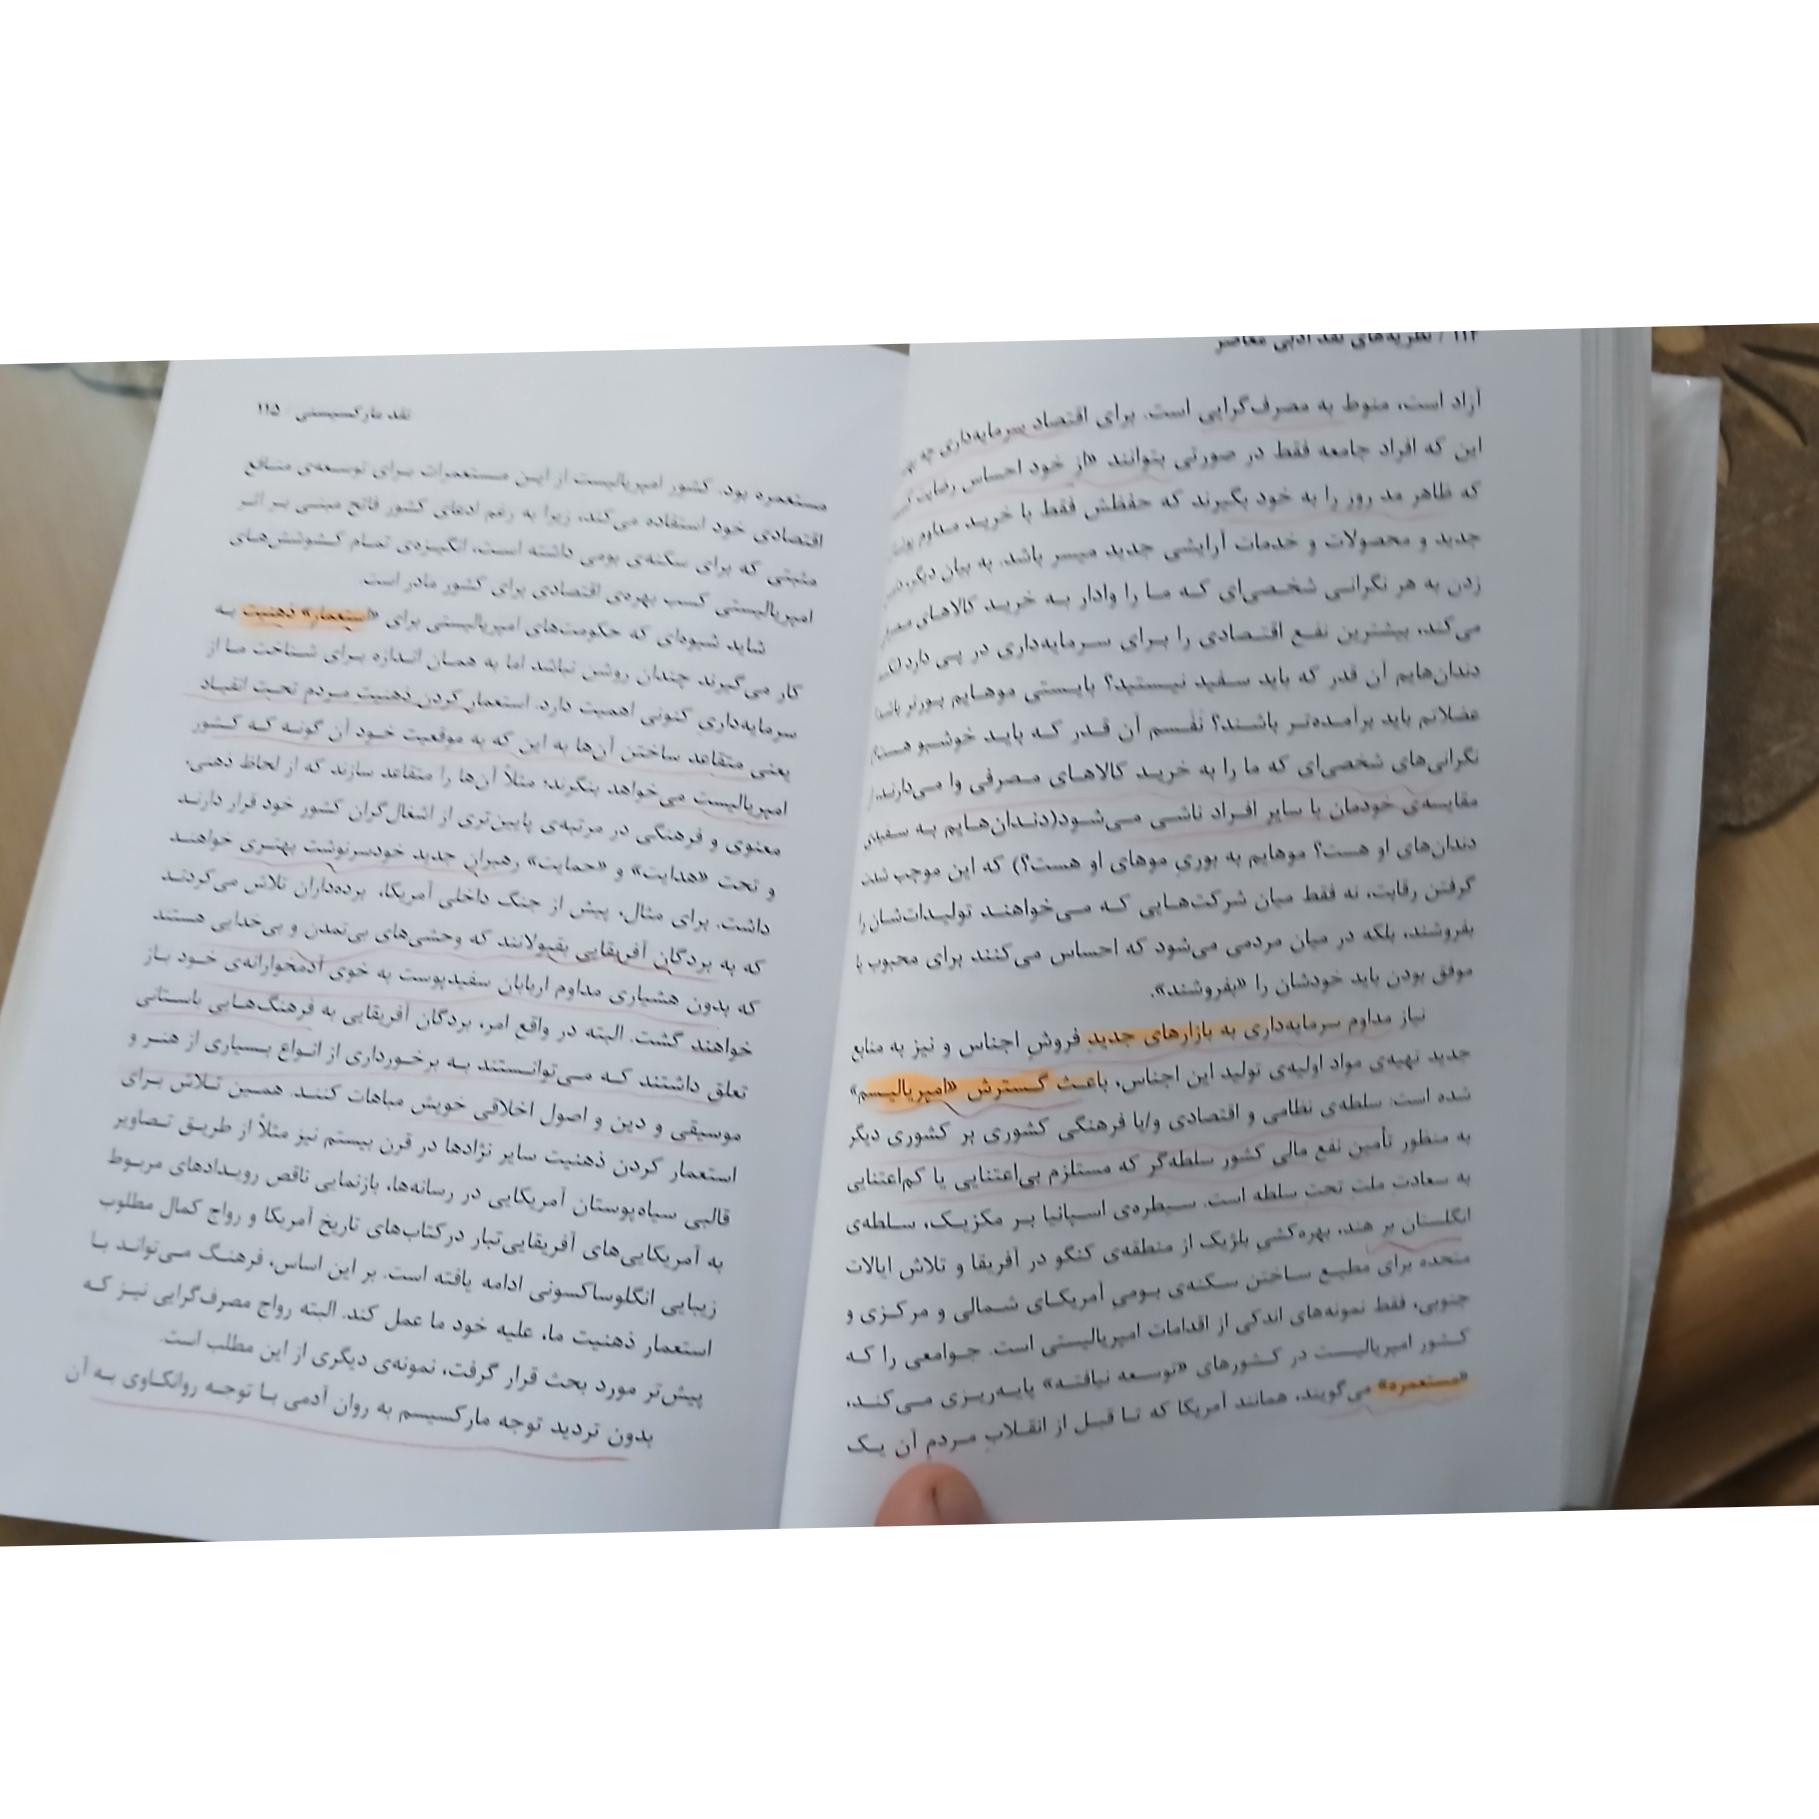 ۱۱۴ / نظریه‌های نقد ادبی معاصر
آزاد است، منوط به مصرف‌گرایی است. برای اقتصاد سرمایه‌داری چه
این که افراد جامعه فقط در صورتی بتوانند «از خود احساس رضایت
که ظاهر مد روز را به خود بگیرند که حفظش فقط با خرید مداوم
جدید و محصولات و خدمات آرایشی جدید میسر باشد. به بیان دیگر،
زدن به هر نگرانی شخصی‌ای که ما را وادار به خرید کالاهای
می‌کند، بیشترین نفع اقتصادی را برای سرمایه‌داری در پی دارد
دندان‌هایم آن قدر که باید سفید نیستید؟ بایستی موهایم بورتر باشد؟
عضلاتم باید برآمده‌تر باشند؟ نَفَسم آن قدر که باید خوشبو
نگرانی‌های شخصی‌ای که ما را به خرید کالاهای مصرفی وا می‌دارند،
مقایسه‌ی خودمان با سایر افراد ناشی می‌شود(دندان‌هایم به سفیدی
دندان‌های او هست؟ موهایم به بوری موهای او هست؟) که این موجب
گرفتن رقابت، نه فقط میان شرکت‌هایی که می‌خواهند تولیدات‌شان را
بفروشند، بلکه در میان مردمی می‌شود که احساس می‌کنند برای محبوب یا
موفق بودن باید خودشان را «بفروشند».
نیاز مداوم سرمایه‌داری به بازارهای جدیدِ فروشِ اجناس و نیز به منابع
جدید تهیه‌ی مواد اولیه‌ی تولید این اجناس، باعث گسترش «امپریالیسم»
شده است: سلطه‌ی نظامی و اقتصادی و/یا فرهنگی کشوری بر کشوری دیگر
به منظور تأمین نفع مالی کشور سلطه‌گر که مستلزم بی‌اعتنایی یا کم‌اعتنایی
به سعادتِ ملت تحت سلطه است. سیطره‌ی اسپانیا بر مکزیک، سلطه‌ی
انگلستان بر هند، بهره‌کشی بلژیک از منطقه‌ی کنگو در آفریقا و تلاش ایالات
متحده برای مطیع ساختن سکنه‌ی بومی آمریکای شمالی و مرکزی و
جنوبی، فقط نمونه‌های اندکی از اقدامات امپریالیستی است. جوامعی را که
کشور امپریالیست در کشورهای «توسعه نیافته» پایه‌ریزی می‌کند،
«مستعمره» می‌گویند، همانند آمریکا که تا قبل از انقلابِ مردمِ آن یک
نقد مارکسیستی / ۱۱۵
مستعمره بود. کشور امپریالیست از این مستعمرات برای توسعه‌ی منافع
اقتصادی خود استفاده می‌کند، زیرا به رغم ادعای کشور فاتح مبنی بر اثر
مثبتی که برای سکنه‌ی بومی داشته است، انگیزه‌ی تمام کشوشش‌های
امپریالیستی کسب بهره‌ی اقتصادی برای کشور مادر است.
شاید شیوه‌ای که حکومت‌های امپریالیستی برای «استعمار» ذهنیت به
کار می‌گیرند چندان روشن نباشد اما به همان اندازه برای شناخت ما از
سرمایه‌داری کنونی اهمیت دارد. استعمار کردن ذهنیت مردم تحت انقیاد
یعنی متقاعد ساختن آن‌ها به این که به موقعیت خود آن گونه که کشور
امپریالیست می‌خواهد بنگرند؛ مثلاً آن‌ها را متقاعد سازند که از لحاظ ذهنی،
معنوی و فرهنگی در مرتبه‌ی پایین‌تری از اشغال‌گران کشور خود قرار دارند
و تحت «هدایت» و «حمایت» رهبران جدید خودسرنوشت بهتری خواهند
داشت. برای مثال، پیش از جنگ داخلی آمریکا، برده‌داران تلاش می‌کردند
که به بردگان آفریقایی بقبولانند که وحشی‌های بی‌تمدن و بی‌خدایی هستند
که بدون هشیاری مداوم اربابان سفیدپوست به خوی آدمخوارانه‌ی خود باز
خواهند گشت. البته در واقع امر، بردگان آفریقایی به فرهنگ‌هایی باستانی
تعلق داشتند که می‌توانستند به برخورداری از انواع بسیاری از هنر و
موسیقی و دین و اصول اخلاقی خویش مباهات کنند. همین تلاش برای
استعمار کردن ذهنیت سایر نژادها در قرن بیستم نیز مثلاً از طریق تصاویر
قالبی سیاه‌پوستان آمریکایی در رسانه‌ها، بازنمایی ناقص رویدادهای مربوط
به آمریکایی‌های آفریقایی‌تبار درکتاب‌های تاریخ آمریکا و رواج کمال مطلوب
زیبایی انگلوساکسونی ادامه یافته است. بر این اساس، فرهنگ می‌تواند با
استعمار ذهنیت ما، علیه خود ما عمل کند. البته رواج مصرف‌گرایی نیز که
پیش‌تر مورد بحث قرار گرفت، نمونه‌ی دیگری از این مطلب است.
بدون تردید توجه مارکسیسم به روان آدمی با توجه روانکاوی به آن